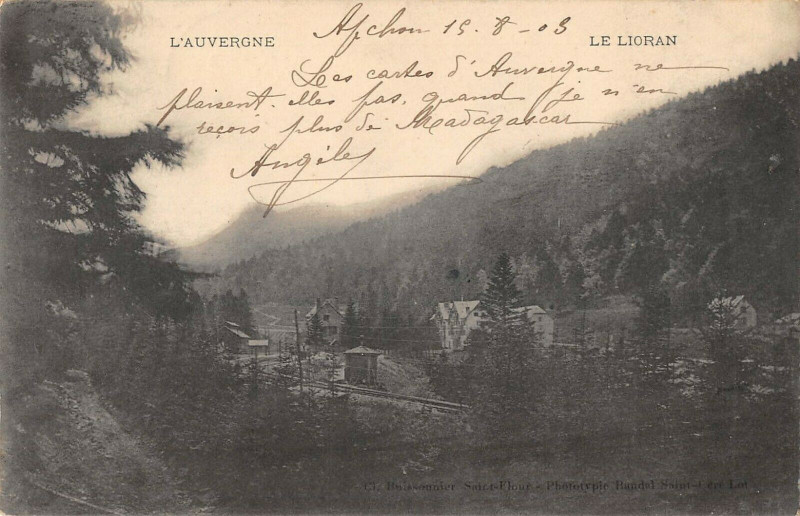 L'AUVERGNE
LE LIORAN
Apchon 15-8-03
Les cartes d'Auvergne ne
plaisent-elles pas, quand je n'en
reçois plus de Madagascar
Angèle
Cl. Buissonnier Saint-Flour - Phototypie Baudel Saint-Céré Lot